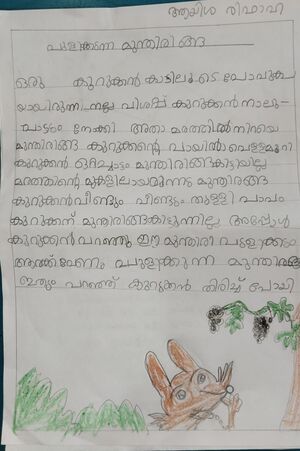 ആയിശ രിഫാഹ
പുളിക്കുന്ന മുന്തിരിങ്ങ
ഒരു കുറുക്കൻ കാട്ടിലൂടെ പോവുക
യായിരുന്നു നല്ല വിശപ്പ് കുറുക്കൻ നാലു-
പാട്ടും നോക്കി അതാ മരത്തിൽ നിറയെ
മുന്തിരിങ്ങ കുറുക്കന്റെ വായിൽ വെള്ളമൂറി
കുറുക്കൻ ഒറ്റച്ചാട്ടം മുന്തിരിങ്ങ കിട്ടിയില്ല
മരത്തിന്റെ മുകളിലായിരുന്നു മുന്തിരങ്ങ
കുറുക്കൻ വീണ്ടും വീണ്ടും തുള്ളി പാവം
കുറുക്കന് മുന്തിരിങ്ങ കിട്ടുന്നില്ല അപ്പോൾ
കുറുക്കൻ പറഞ്ഞു ഈ മുന്തിരി
ആർക്ക് വേണം പുളിക്കുന്ന മുന്തിരങ്ങ
ഇതും പറഞ്ഞ് കുറുക്കൻ തിരിച്ച് പോയി